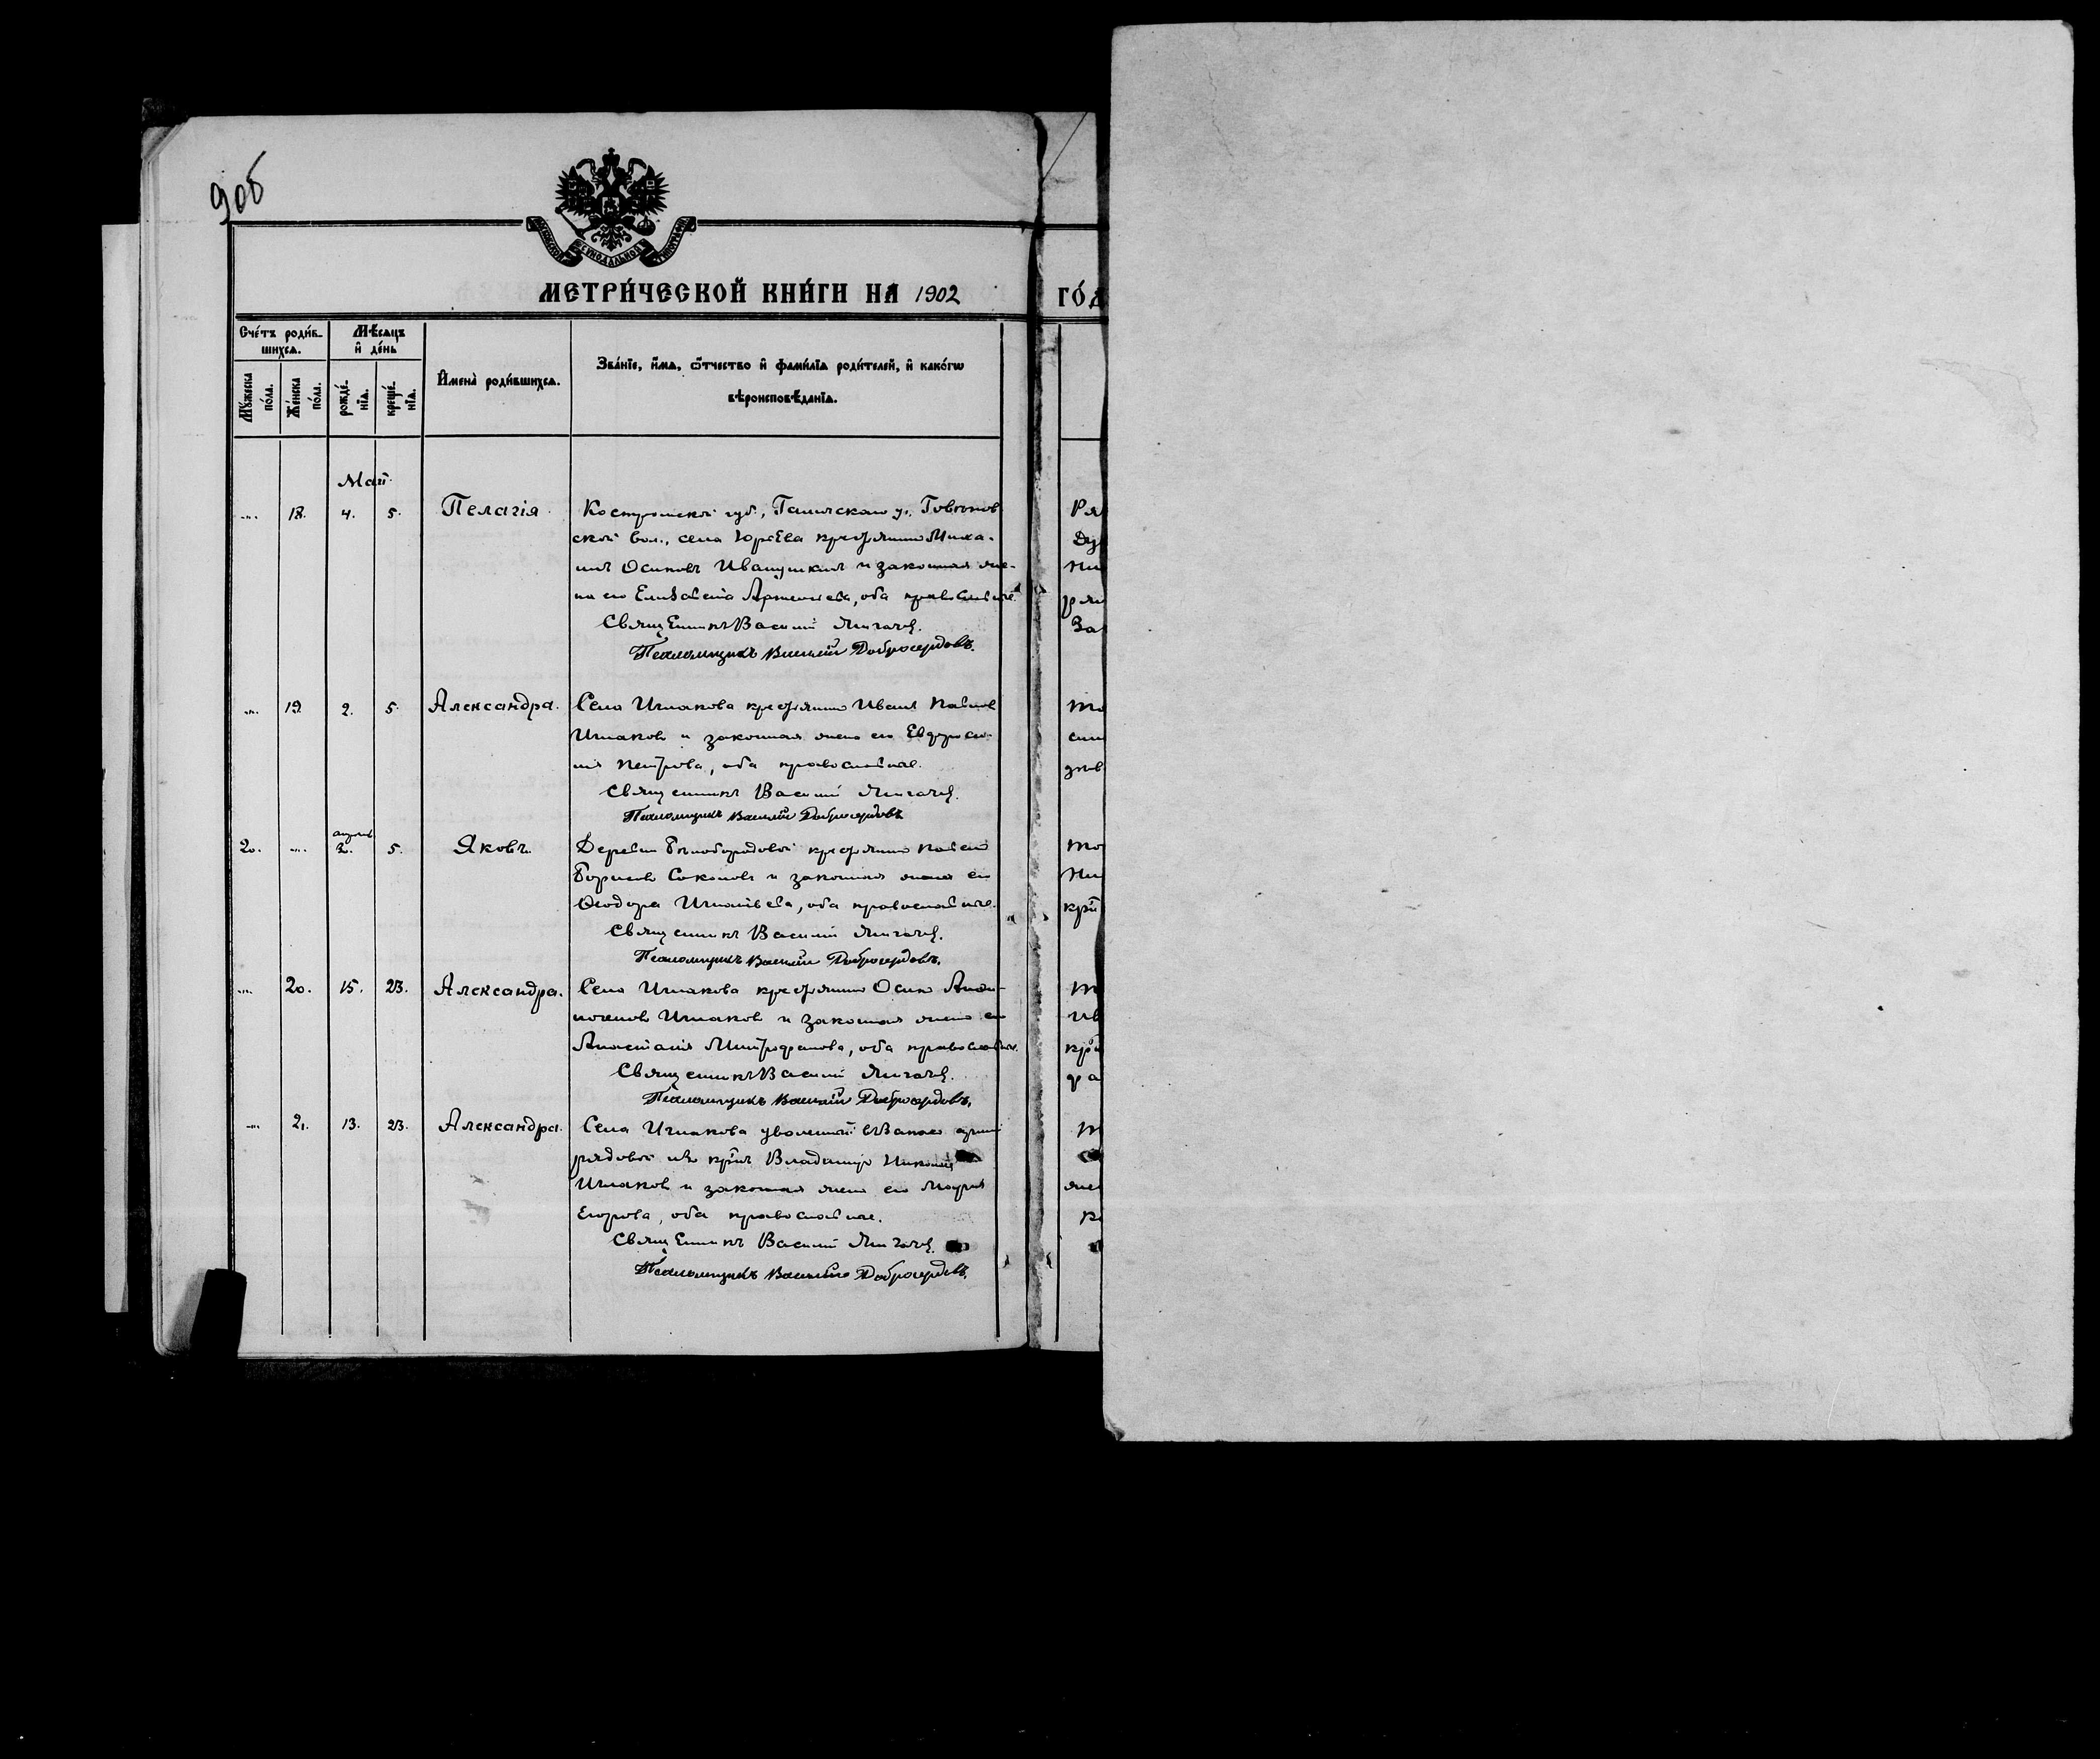 90б
МОСКОВСКОЙ СѴНОДАЛЬНОЙ ТИПОГРАФІИ
МЕТРИ́ЧЕСКОЙ КНИ́ГИ НА 1902
ГО́Д
Сче́тъ роди́вшихсѧ.
Мꙋ́жеска по́ла.
Же́нска по́ла.
Мѣ́сѧцъ и҆ де́нь
рожде́нїѧ.
креще́нїѧ.
И҆мена̀ роди́вшихсѧ.
Зва́нїе, и҆́мѧ, ѻ҆́тчество и҆ фами́лїѧ роди́телей, и҆ како́гѡ
вѣроисповѣ́данїѧ.
Май
18. 4. 5. Пелагія
Костромской губ., Галичскаго у.,
ской вол., села Юрьева крестьянинъ Миха-
илъ Осиповъ Ивашуткинъ и законная же-
на его Елизавета Артемьева, оба православные.
Священникъ Василій
Псаломщикъ Василій Добросердовъ.
19. 2. 5. Александра.
Села Игнакова крестьянинъ Иванъ Павловъ
Игнаковъ и законная жена его Евфроси-
нія Петрова, оба православные.
Священникъ Василій
Псаломщикъ Василій Добросердовъ
20. апрѣля 30. 5. Яковъ.
Деревни Бѣлобородовой крестьянинъ Павелъ
Борисовъ Соколовъ и законная жена его
Ѳеодора Игнатьева, оба православные.
Священникъ Василій
Псаломщикъ Василій Добросердовъ.
20. 15. 23. Александра.
Села Игнакова крестьянинъ Осипъ
Игнаковъ и законная жена его
Анастасія Митрофанова, оба православные.
Священникъ Василій
Псаломщикъ Василій Добросердовъ.
21. 13. 23. Александра.
Села Игнакова уволенный въ запасъ арміи
рядовой изъ кр-нъ Владимиръ
Игнаковъ и законная жена его Марія
Егорова, оба православные.
Священникъ Василій
Псаломщикъ Василій Добросердовъ.